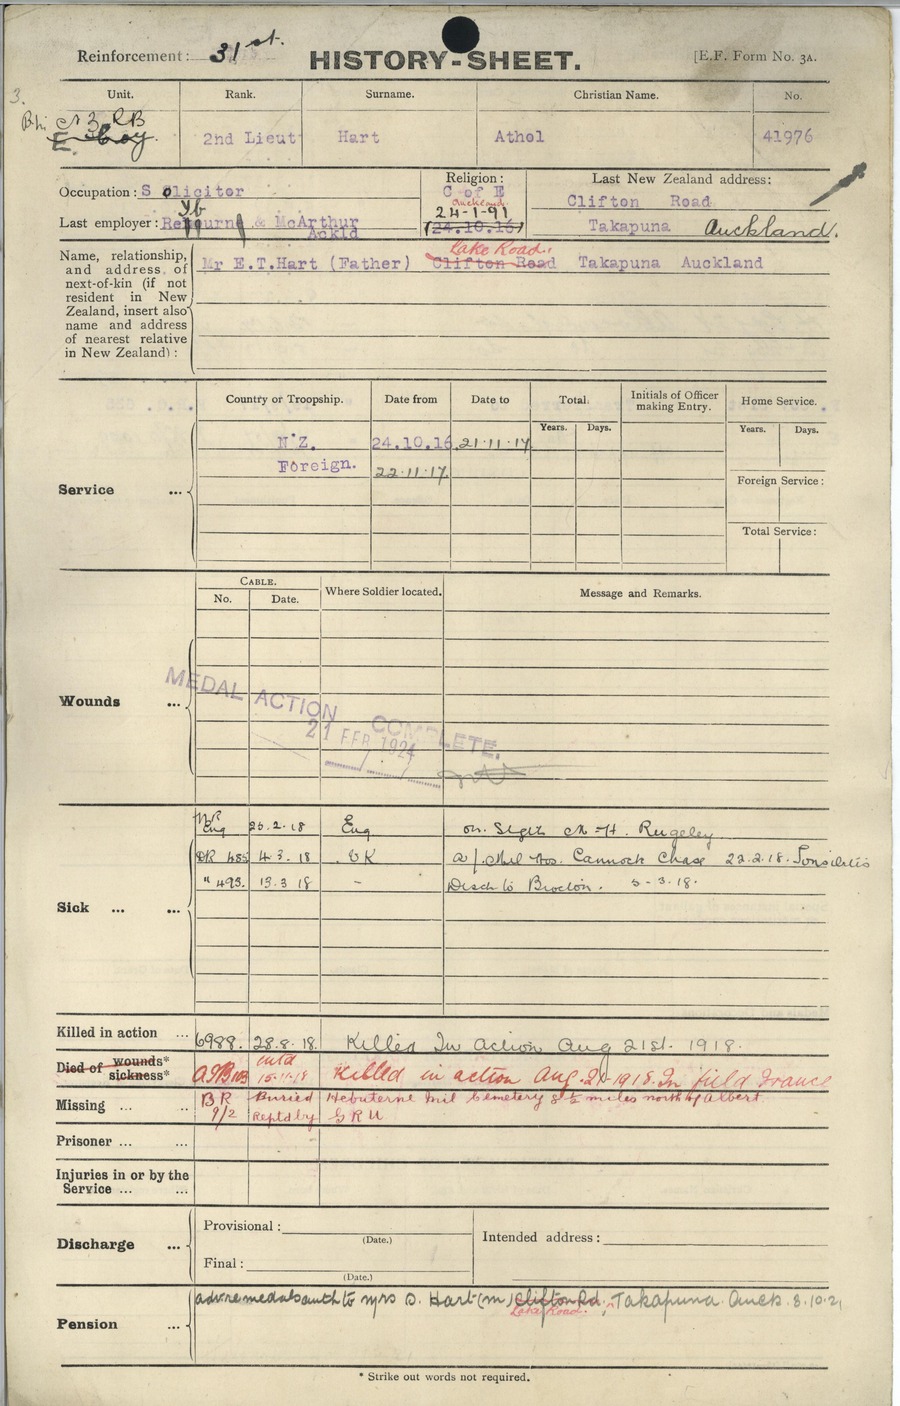 Reinforcement: 31st.
HISTORY-SHEET.
[E.F. Form No. 3A.
3.
Unit. Rank. Surname. Christian Name. No.
3 RB
E Coy
2nd Lieut Hart Athol 41976
Occupation: Solicitor
Last employer: & McArthur
Ackld
Religion:
C of E
Auckland
24-1-91
(24.10.16)
Last New Zealand address:
Clifton Road
Takapuna Auckland.
Name, relationship,
and address of
next-of-kin (if not
resident in New
Zealand, insert also
name and address
of nearest relative
in New Zealand):
Lake Road.
Mr E.T.Hart (Father) Clifton Road Takapuna Auckland
Service ...
Country or Troopship. Date from Date to Total. Initials of Officer
making Entry. Home Service.
Years. Days. Years. Days.
N.Z. 24.10.16. 21.11.17.
Foreign. 22.11.17.
Foreign Service:
Total Service:
Wounds ...
CABLE.
No. Date. Where Soldier located. Message and Remarks.
MEDAL ACTION COMPLETE.
21 FEB 1924
Sick ... ...
Eng .2.18 Eng M H. Rugeley
DR 485 4.3.18 UK Mil Hos. Cannock Chase 22.2.18. Tonsilitis
" 493. 13.3.18 - Disch to Brocton. 5-3.18.
Killed in action ... 6988. 28.8.18. Killed In Action Aug 21st. 1918.
Died of wounds*
sickness* 15.11.18 Killed in action Aug. 21-1918. In field France
Missing ... ... BR
9/2 Buried Hebuterne Mil Cemetery 8½ miles north of Albert
Reptd by GRU
Prisoner ... ...
Injuries in or by the
Service ... ...
Discharge ...
Provisional:
(Date.)
Final:
(Date.)
Intended address:
Pension ...
medals auth to Mrs Hart (m) Clifton Rd., Takapuna Auck. 8.10.21
Lake Road.
* Strike out words not required.